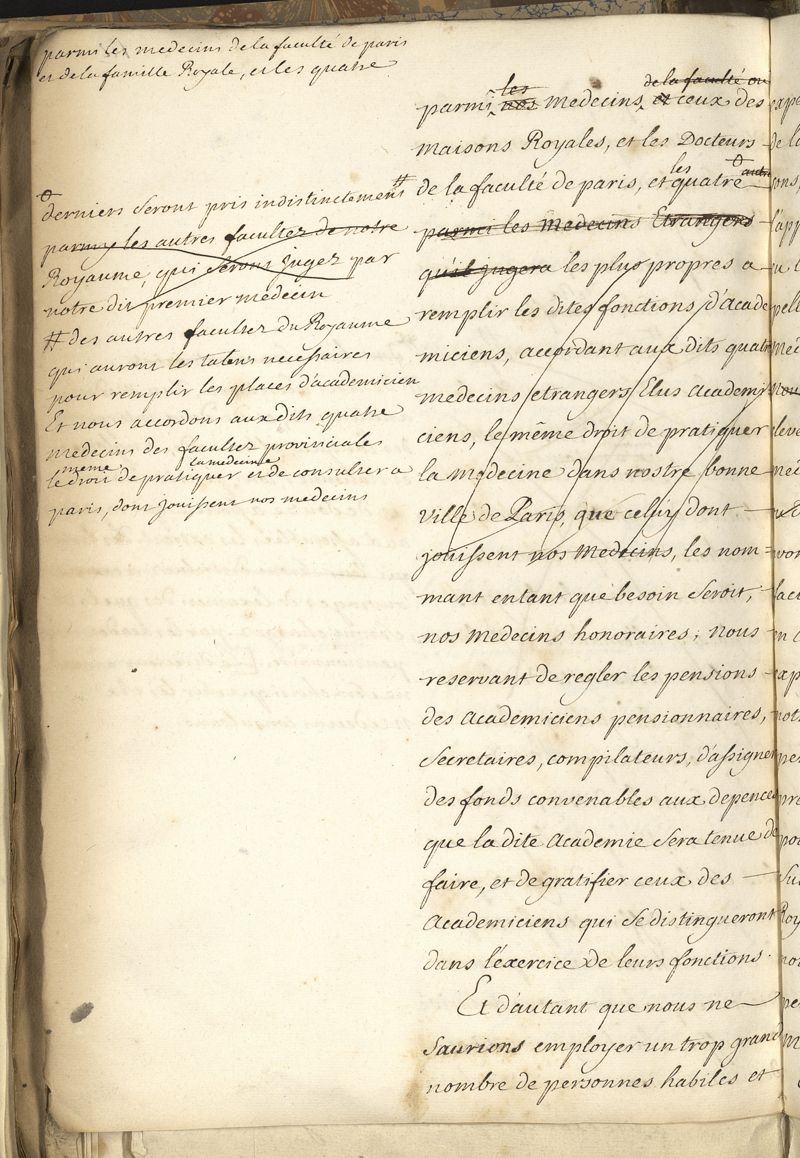 parmi les medecins de la faculté de paris
et de la famille Royale, et les quatre
derniers seront pris indistinctement #
parmy les autres facultez de notre
Royaume, qui seront jugez par
notre dit premier medecin
# des autres facultez du Royaume
qui auront les talens necessaires
pour remplir les places d'academicien
Et nous accordons aux dits quatre
medecins des facultez provinciales
même la medecine
le droit de pratiquer et de consulter a
paris, dont jouissent nos medecins
les de la faculté ou
parmi nos medecins, et ceux des
maisons Royales, et les Docteurs
les autres
de la faculté de paris, et quatre
parmi les Medecins Etrangers
qu'il jugera les plus propres a
remplir les dites fonctions d'Acade
miciens, accordant aux dits quatre
medecins etrangers Elus Academi
ciens, le même droit de pratiquer
la Medecine dans nostre bonne
Ville de Paris, que celuy dont
jouissent nos Medecins, les nom=
mant entant que besoin seroit,
nos Medecins honoraires; nous
reservant de regler les pensions
des Academiciens pensionnaires,
Secretaires, compilateurs, d'assigner
des fonds convenables aux depences
que la dite Academie sera tenue de
faire, et de gratifier ceux des
Academiciens qui se distingueront
dans l'éxercice de leurs fonctions.
Et d'autant que nous ne
Saurions employer un trop grand
nombre de personnes habiles et